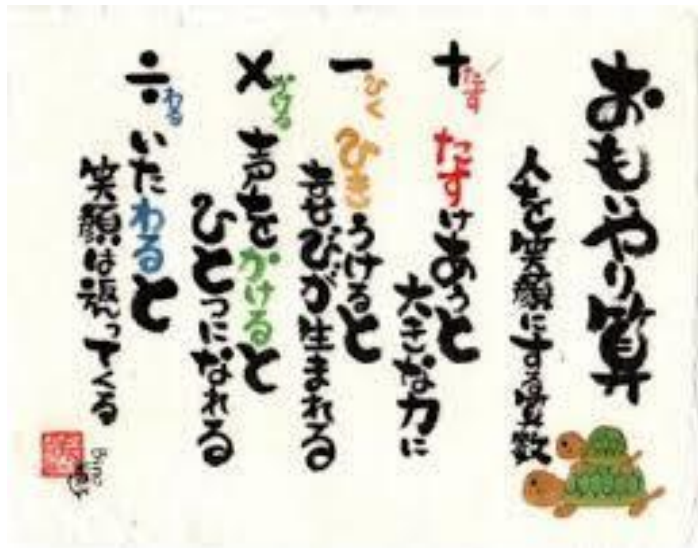 おもいやり算
人を笑顔にする算数
+たす
たすけあうと
大きな力に
−ひく
ひきうけると
喜びが生まれる
×かける
声をかけると
ひとつになれる
÷わる
いたわると
笑顔は返ってくる